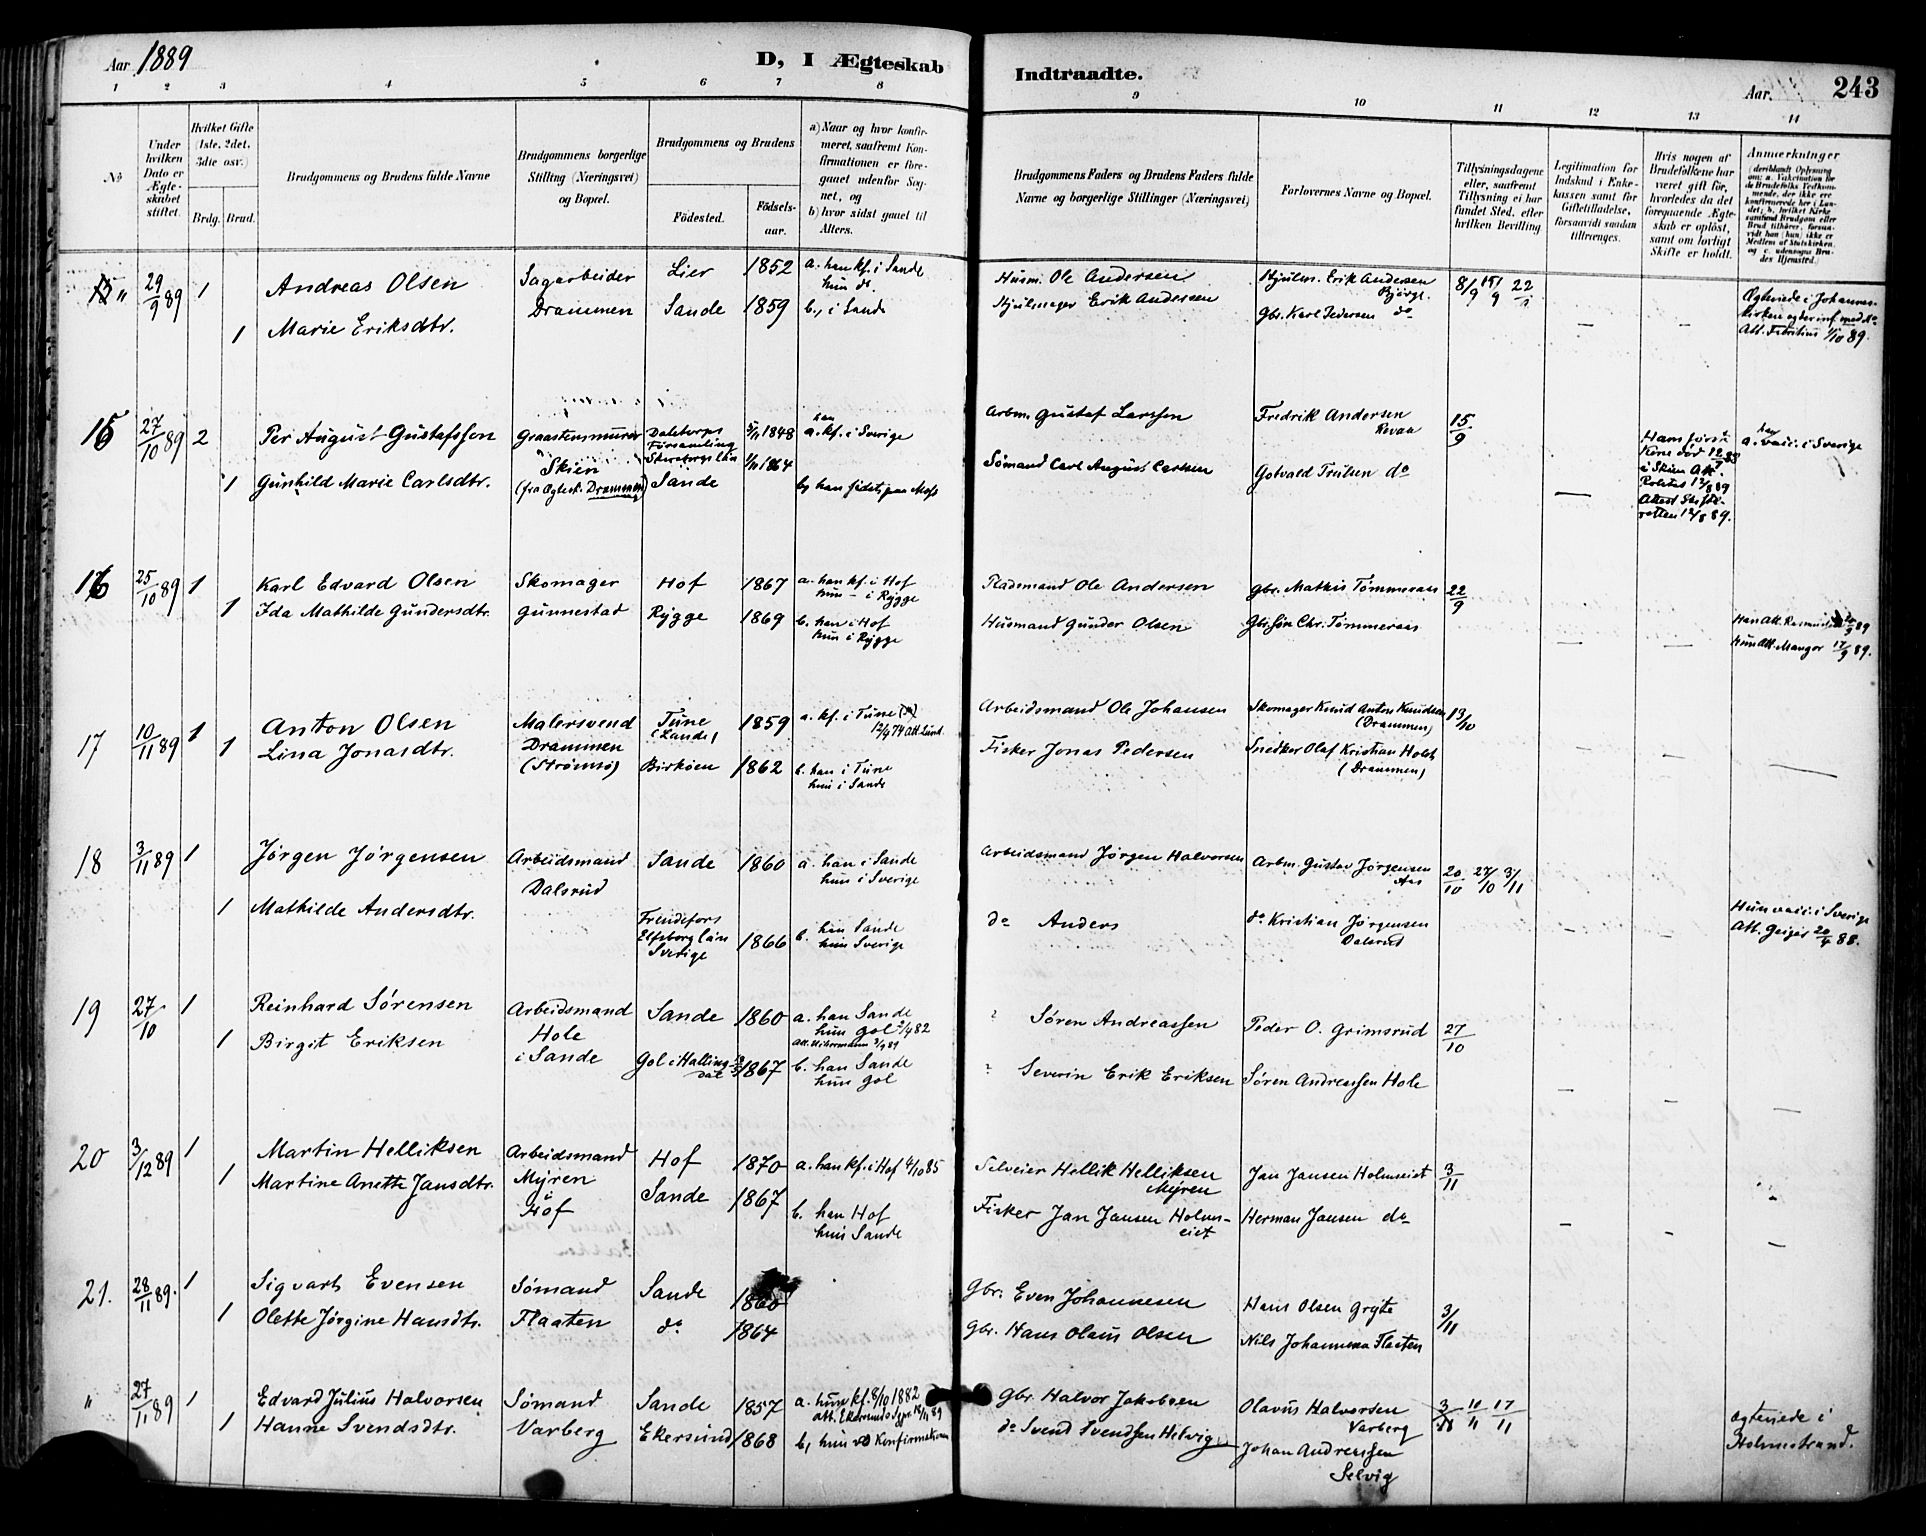 Aar 1889
D, I Ægteskab
Indtraadte.
Aar.
243
1 2 3 4 5 6 7 8 9 10 11 12 13 14
No
Under hvilken Dato er Ægteskabet stiftet.
Hvilket Gifte (1ste, 2det, 3die osv.)
Brdg. Brud.
Brudgommens og Brudens fulde Navne
Brudgommens borgerlige Stilling (Næringsvei) og Bopæl.
Brudgommens og Brudens
Fødested.
Fødselsaar.
a) Naar og hvor konfirmeret, saafremt Konfirmationen er foregaaet udenfor Sognet, og
b) hvor sidst gaaet til Alters.
Brudgommens Faders og Brudens Faders fulde Navne og borgerlige Stillinger (Næringsvei)
Forlovernes Navne og Bopæl.
Tillysningsdagene eller, saafremt Tillysning ei har fundet Sted, efter hvilken Bevilling
Legitimation for Indskud i Enkekassen samt for Giftetilladelse, forsaavidt saadan tiltrænges.
Hvis nogen af Brudefolkene har været gift før, hvorledes da det foregaaende Ægteskab er opløst, samt om lovligt Skifte er holdt.
Anmærkninger
29/9 89 1 Andreas Olsen Sagarbeider Lier 1852 a. han kf. i Sande
hun do.
Husm. Ole Andersen Hjulm. Erik Andersen
Bjerge. 8/9 15/9 22/9
1 Marie Eriksdtr. Drammen Sande 1859 b, i Sande
Hjulmager Erik Andersen Gbr. Karl Pedersen do
Ægteviede i Johannes-
kirken
Att. Fabritius 1/10 89.
15 27/10 89 2 Per August Gustafsson Graastensmurer
Daletorps
Församling
Skaraborgs län 5/11 1848 a. han kf. i Sverige
Arbm. Gustaf Larsson Fredrik Andersen
Revaa 15/9
1 Gunhild Marie Carlsdtr. Skien
(fra Ægtesk. Drammen) Sande 1864
Sømand Carl August Carlsen Gotvald Truilsen do
Hans første
Kone død
i Skien Att.
12/8 89
Attest Skifte-
retten 12/8 89.
a. han vacc. i Sverige
16 25/10 89 1 Karl Edvard Olsen Skomager Hof 1867 a. han kf. i Hof
hun - i Rygge
Pladsmand Ole Andersen Gbr. Mathis Tømmeraas 22/9
1 Ida Mathilde Gundersdtr. Gunnestad Rygge 1869 b. han i Hof
hun i Rygge
Husmand Gunder Olsen Gbr.søn Chr. Tømmeraas
Han Att. 20/9 89
Hun Att. Mangor 17/9 89.
17 10/11 89 1 Anton Olsen Malersvend
Tune 1859 a. kf. i Tune
12/4 74 Att. Lund.
Arbeidsmand Ole Johansen Skomager Knud Anton Knudsen
(Drammen) 13/10
1 Lina Jonasdtr. Drammen
(Strømsø) Birkøen 1862 b. han i Tune
hun i Sande
Fisker Jonas Pedersen Snedker Olaf Kristian Holst
(Drammen)
18 3/11 89 1 Jørgen Jørgensen Arbeidsmand
Dalsrud Sande 1860 a. han i Sande
hun i Sverige
Arbeidsmand Jørgen Halvorsen Arbm. Gustav Jørgensen
Aas 20/10 27/10 3/11
1 Mathilde Andersdtr.
Frendefors
Elfsborg län
Sverige 1866 b. han Sande
hun Sverige
do Anders do Kristian Jørgensen
Dalsrud
Hun vacc. i Sverige
Att. Geijer 20/4 88.
19 27/10 1 Reinhard Sørensen Arbeidsmand Sande 1860 a. han Sande
hun Gol 2/4 82
Søren Andreassen Peder O. Grimsrud 27/10
1 Birgit Eriksen Hole
i Sande Gol i Halling-
dal 1867 b. han Sande
hun Gol
Severin Erik Eriksen Søren Andreassen Hole
20 3/12 89 1 Martin Helliksen Arbeidsmand Hof 1870 a. han kf. i Hof 4/10 85
Selveier Hellik Helliksen
Myren Jan Jansen Holmseiet 3/11
1 Martine Anette Jansdtr. Myren
Hof Sande 1867 b. han Hof
hun Sande
Fisker Jan Jansen Holms-
eiet Herman Jansen do
21. 28/11 89. 1 Sigvart Evensen Sømand Sande 1860
Gbr. Even Johannesen Hans Olsen Gryte 3/11
1 Olette Jørgine Hansdtr. Flaaten do 1864
Gbr. Hans Olaus Olsen Nils Johannesen Flaaten
" 27/11 89 1 Edvard Julius Halvorsen Sømand Sande 1857 a. hun kf. 8/10 1882
Att. Ekersunds
Gbr. Halvor Jakobsen Olavus Halvorsen
Varberg 3/11 10/11 17/11
1 Hanne Svendsdtr. Varberg Ekersund 1868 b, hun v. Konfirmationen
do Svend Svendsen Helvig Johan Andreassen
Selvig
Ægteviede i
Holmestrand.